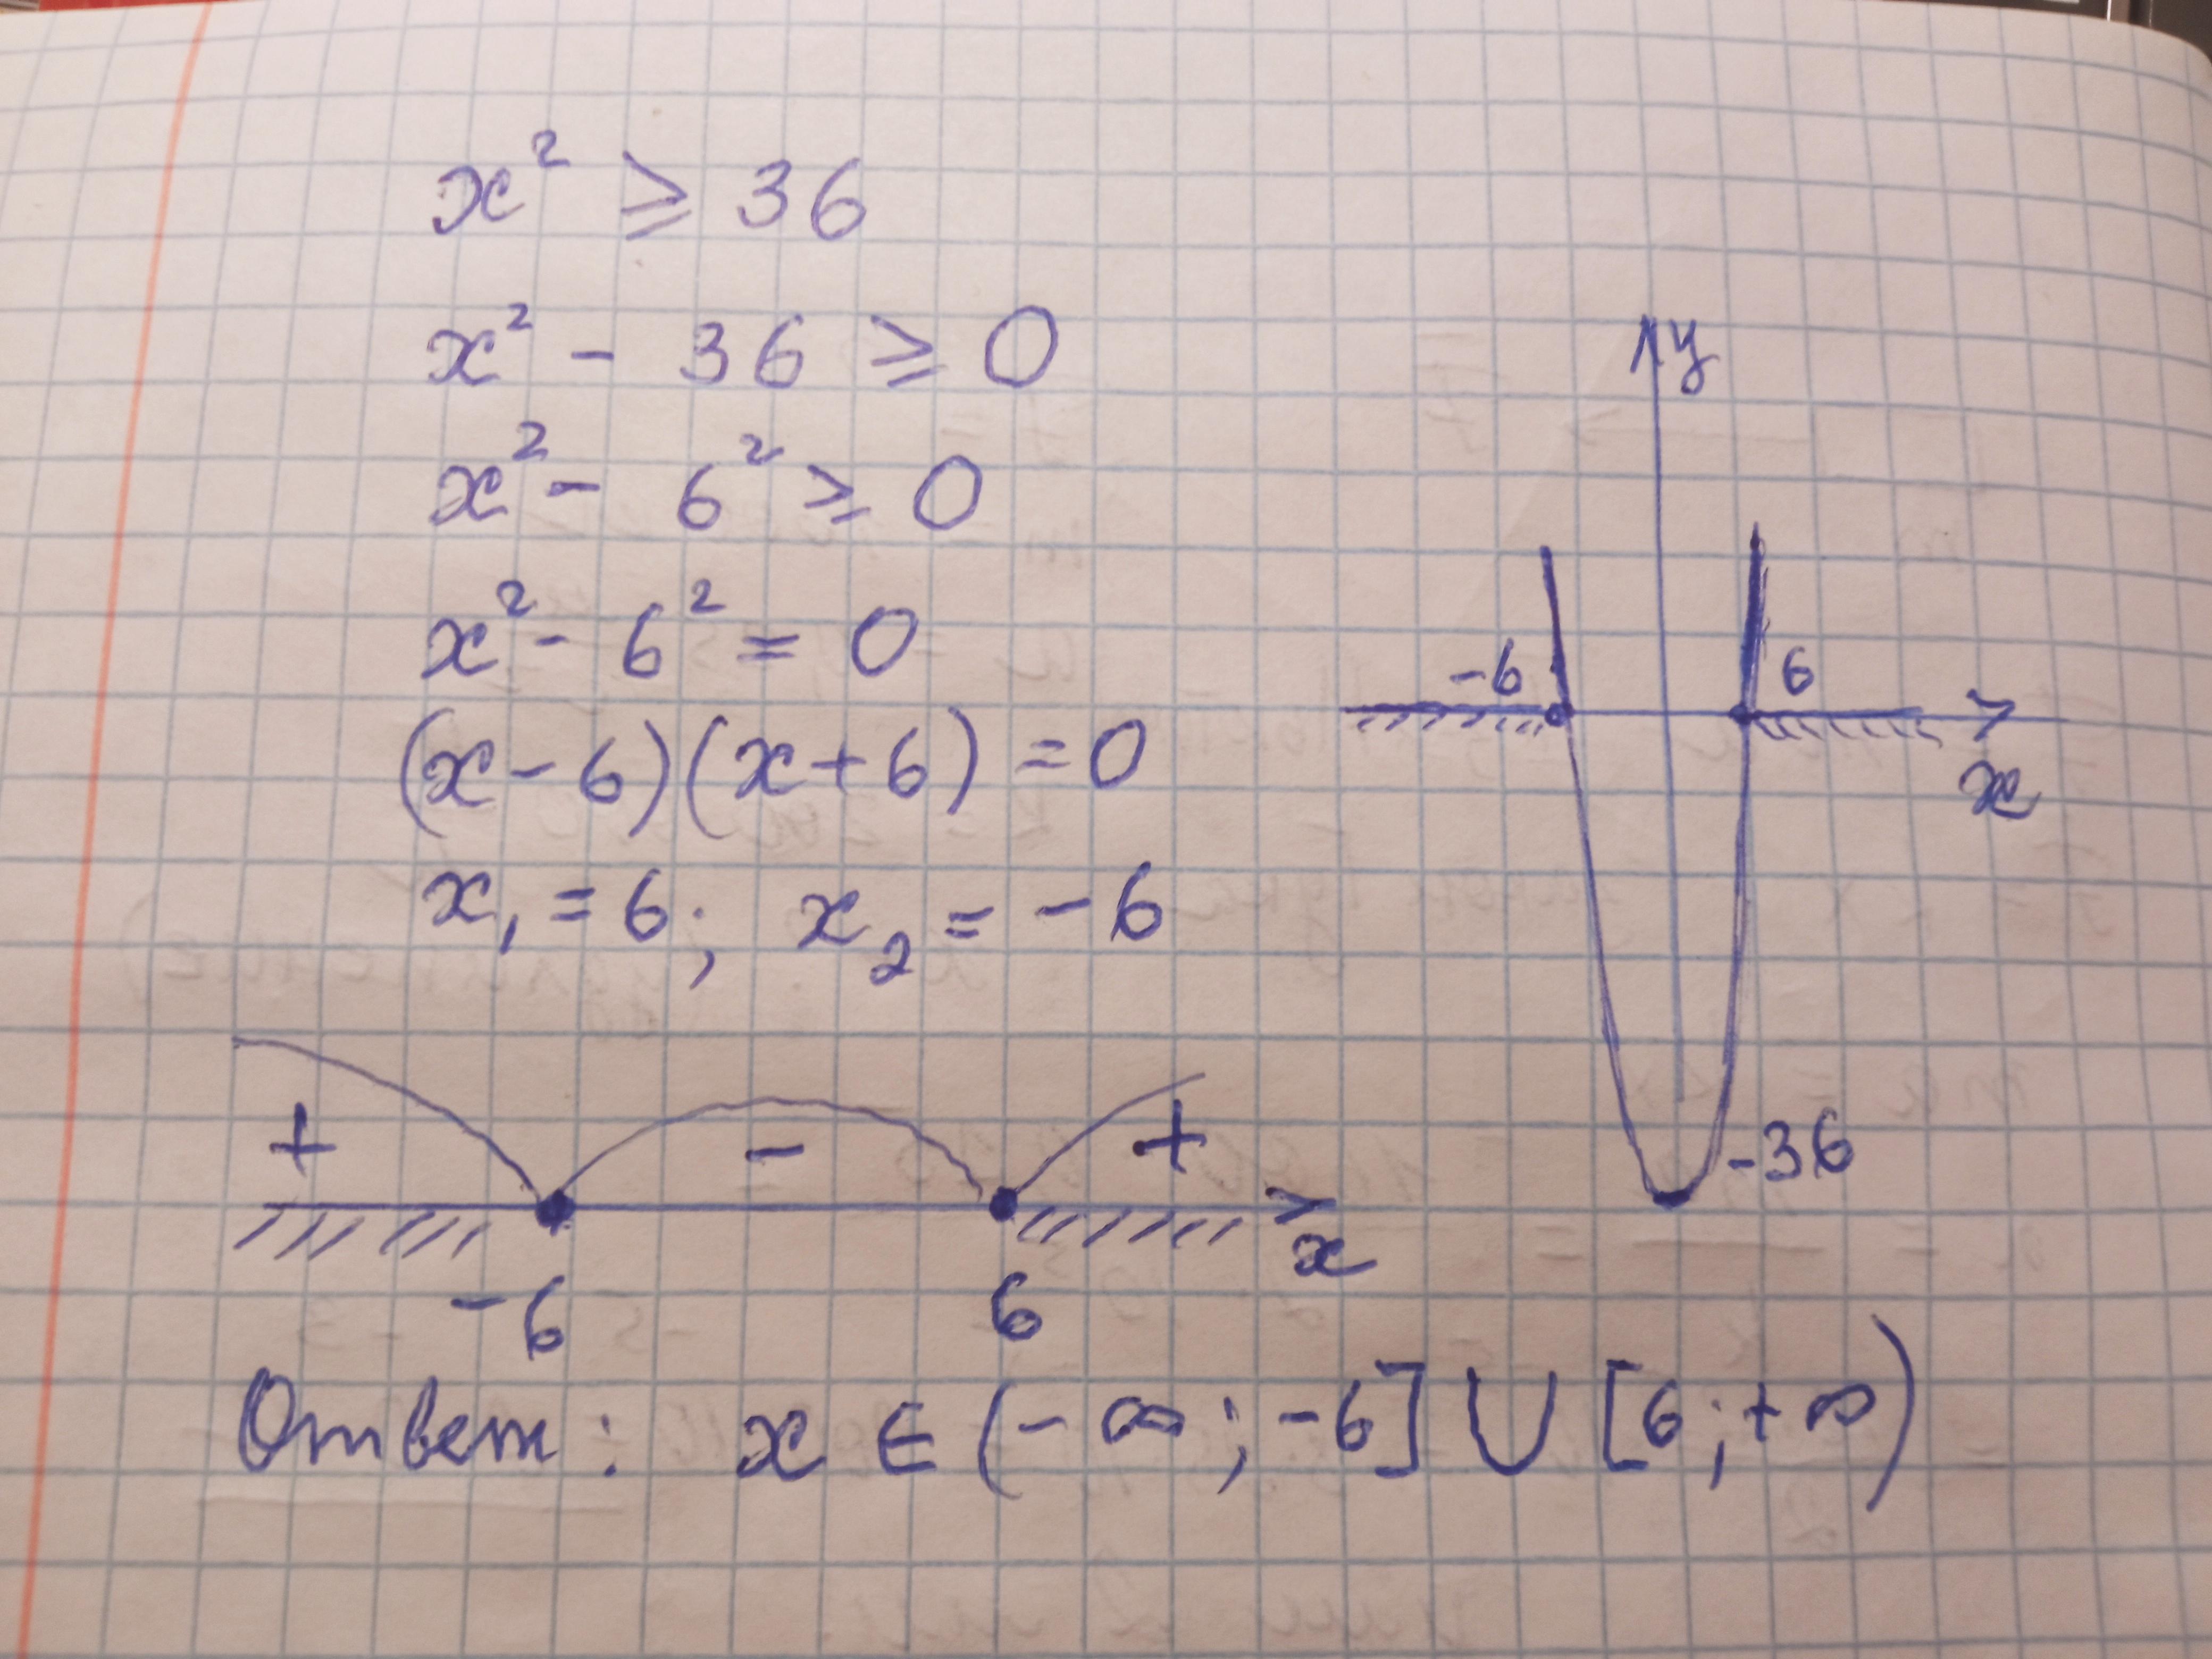 x² ⩾ 36
x² - 36 ⩾ 0
x² - 6² ⩾ 0
x² - 6² = 0
(x - 6)(x + 6) = 0
x₁ = 6; x₂ = -6
y
-6 6
x
-36
+ - +
x
-6 6
Ответ: x ∈ (-∞; -6] ∪ [6; +∞)